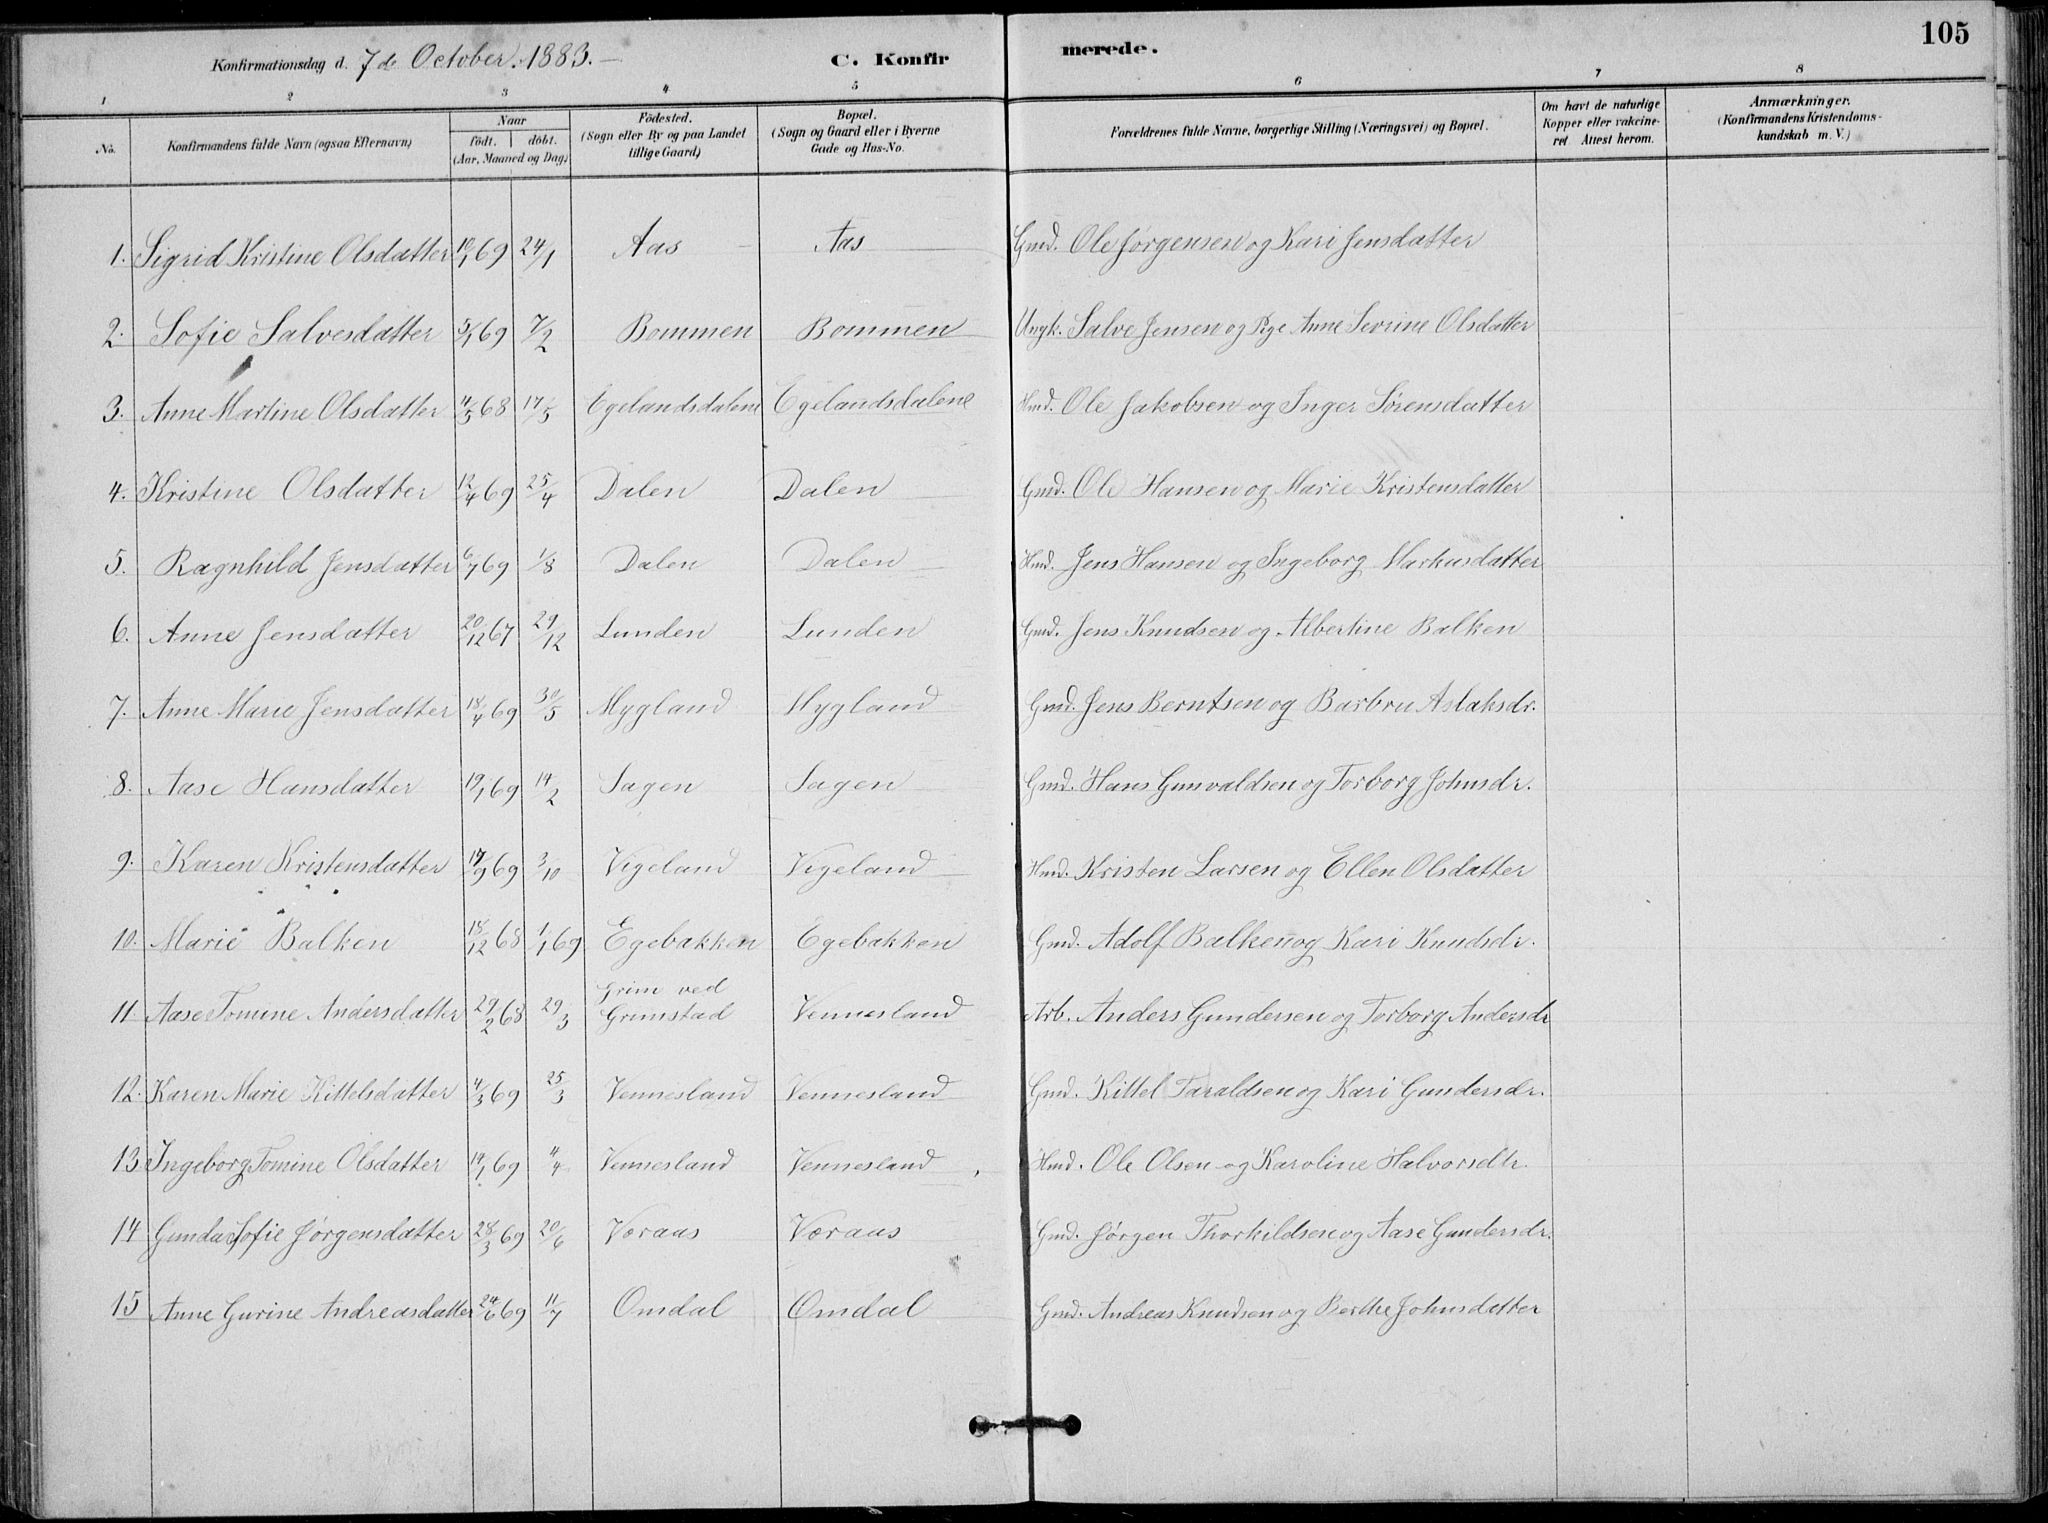 105
Konfirmationsdag d. 7de October. 1883. —
C. Konfir merede.
1 2 3 4 5 6 7 8
No. Konfirmandens fulde Navn (ogsaa Efternavn) Naar födt. döbt. (Aar, Maaned og Dag) Födested. (Sogn eller By og paa Landet tillige Gaard) Bopæl. (Sogn og Gaard eller i Byerne Gade og Hus-No. Forældrenes fulde Navne, borgerlige Stilling (Næringsvei) og Bopæl. Om havt de naturlige Kopper eller vakcineret Attest herom. Anmærkninger. (Konfirmandens Kristendomskundskab m. V.)
1. Sigrid Kristine Olsdatter 10/1 69 24/1 Aas Aas Gmd. Ole Jørgensen og Kari Jensdatter
2. Sofie Salvesdatter 5/1 69 7/2 Bommen Bommen Ungk. Salve Jensen og Pge Anne Sevrine Olsdatter
3. Anne Martine Olsdatter 11/5 68 17/5 Egelandsdalene Egelandsdalene Hmd. Ole Jakobsen og Inger Sørensdatter
4. Kristine Olsdatter 12/4 69 25/4 Dalen Dalen Gmd. Ole Hansen og Marie Kristensdatter
5. Ragnhild Jensdatter 6/7 69 1/8 Dalen Dalen Hmd. Jens Hansen og Ingeborg Markusdatter
6. Anne Jensdatter 20/12 67 29/12 Lunden Lunden Gmd. Jens Knudsen og Albertine Balken
7. Anne Marie Jensdatter 18/4 69 30/5 Mygland Mygland Gmd. Jens Berntsen og Barbru Aslaksdr.
8. Aase Hansdatter 19/1 69 14/2 Sagen Sagen Gmd. Hans Gunvaldsen og Torborg Johnsdr.
9. Karen Kristensdatter 17/9 69 3/10 Vigeland Vigeland Hmd. Kristen Larsen og Ellen Olsdatter
10. Marie Balken 18/12 68 1/1 69 Egebakken Egebakken Gmd. Adolf Balken og Kari Knudsdr.
11. Aase Tomine Andersdatter 29/2 68 29/3 Grim ved Grimstad Vennesland Arb. Anders Gundersen og Torborg Andersdr
12. Karen Marie Kittelsdatter 4/3 69 25/3 Vennesland Vennesland Gmd. Kittel Taraldsen og Kari Gundersdr.
13 Ingeborg Tomine Olsdatter 14/1 69 4/4 Vennesland Vennesland Hmd. Ole Olsen og Karoline Halvorsdtr.
14 Gunda Sofie Jørgensdatter 28/3 69 20/6 Væraas Væraas Gmd. Jørgen Thorkildsen og Aase Gundersdr.
15 Anne Gurine Andreasdatter 24/6 69 11/7 Omdal Omdal Gmd. Andreas Knudsen og Berthe Johnsdatter